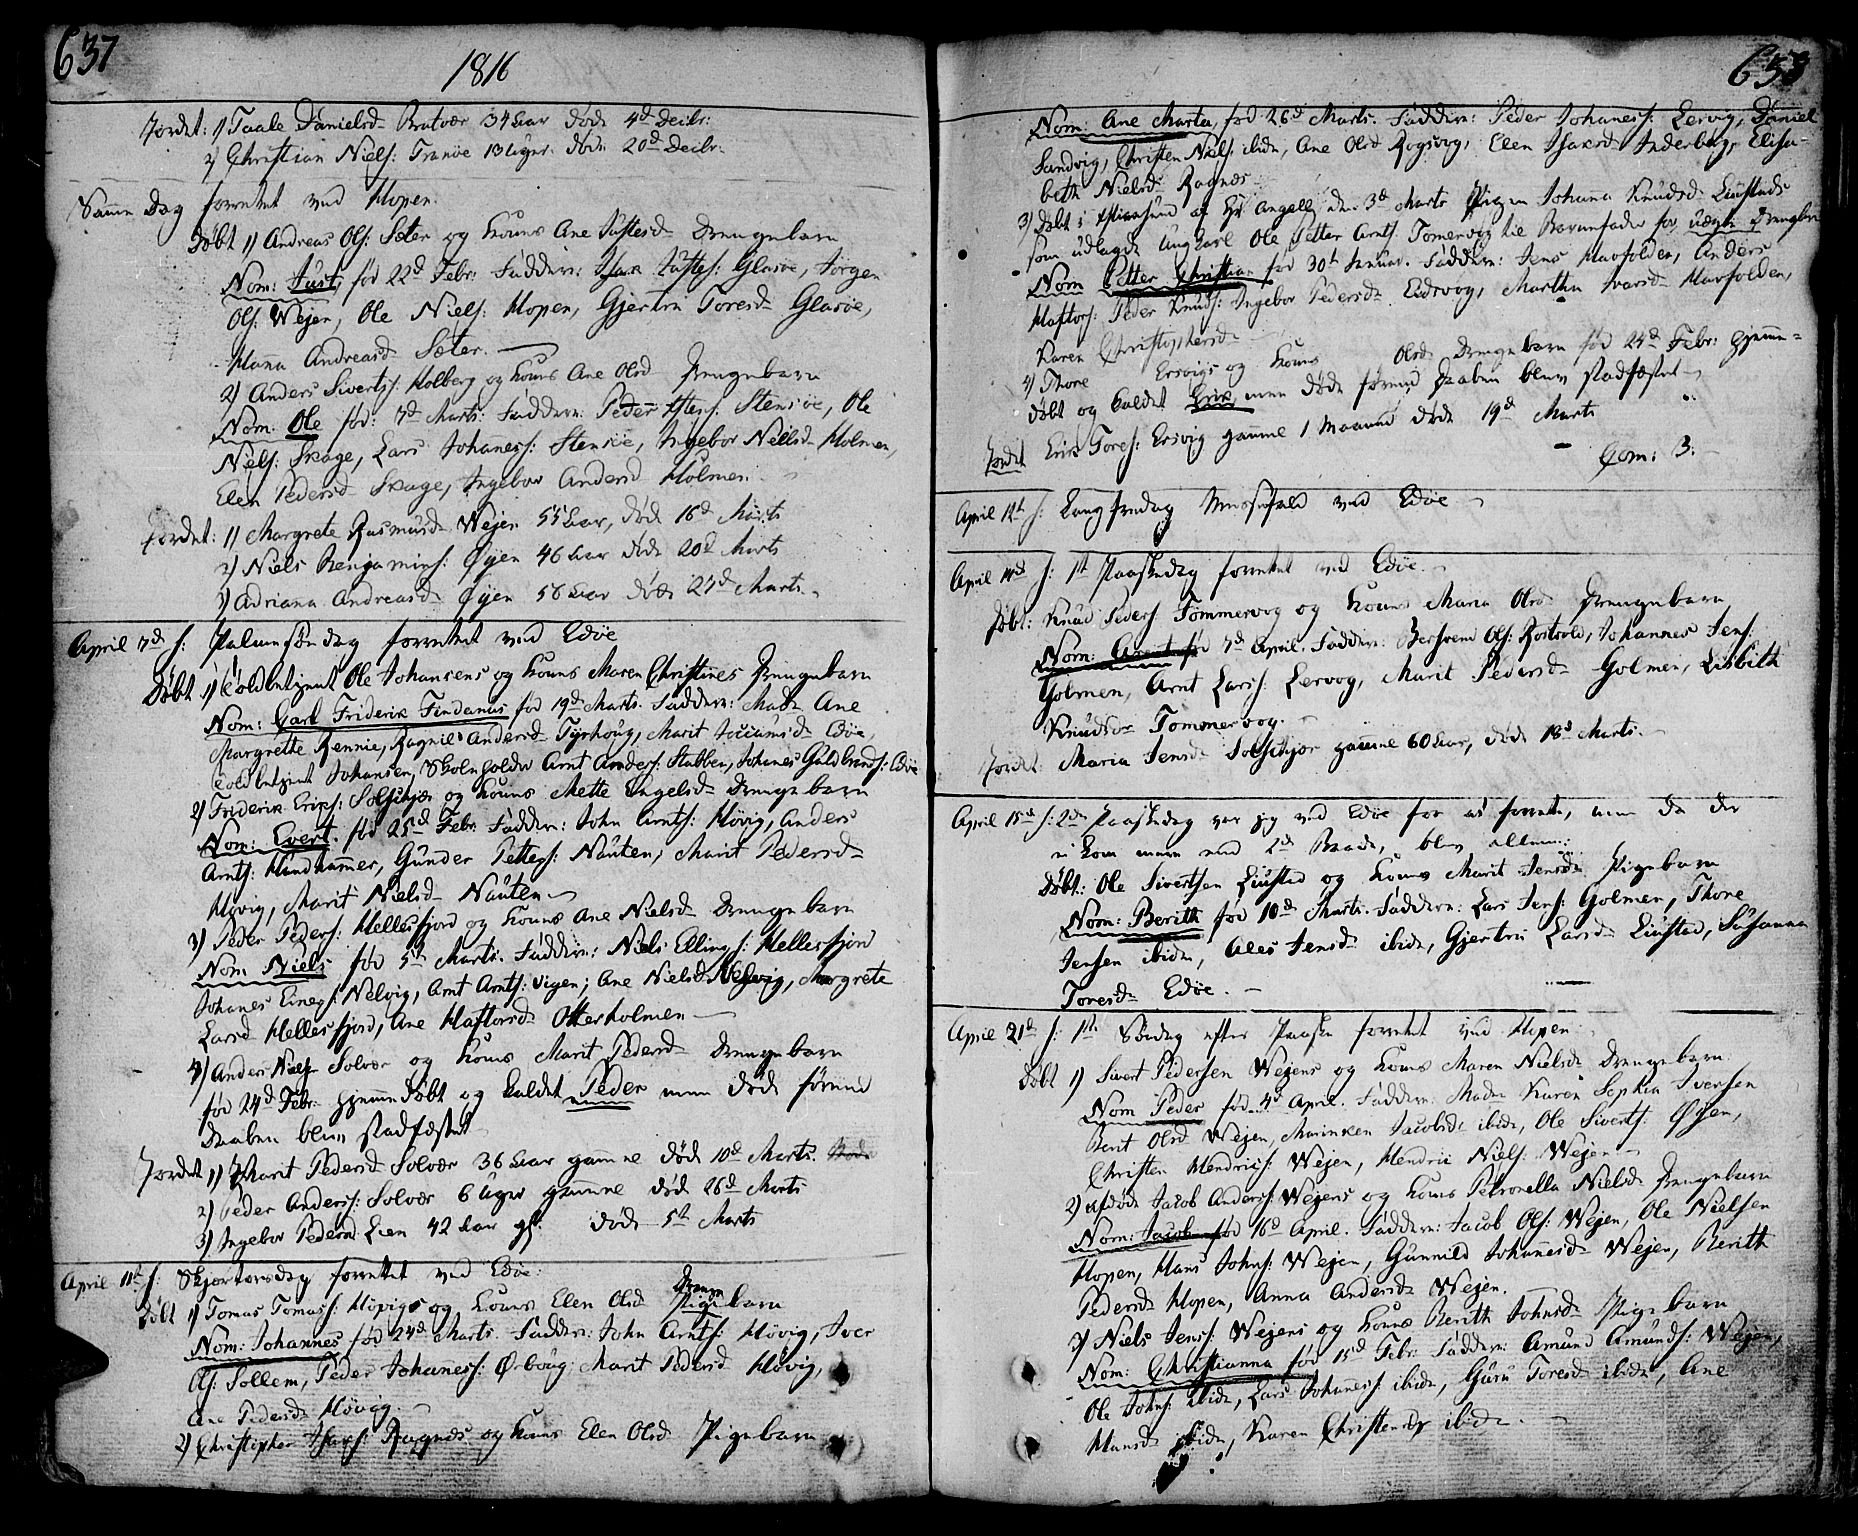 637
1816
Jordet: 1) Taale Danielsd Bratvær 34 Aar døde 4d Decbr:
2) Christian Niels: Tranøe 13 Uger døde 20d Decbr.
Samme Dag forrettet ved Hopen.
Døbt 1) Andreas Ols: Sæter og Kones Ane Juftesd Drengebarn
Nom: Just, fød 22d Febr: Faddere: Isak Juftes: Glasøe, Jørgen
Ols: Wejen, Ole Niels: Hopen, Gjertru Toresd Glasøe,
Hanna Andreasd Sæter.
2) Anders Siverts: Holberg og Kones Ane Olsd Drengebarn
Nom: Ole fød: 7d Marts: Faddere: Peder Iffens: Stensøe, Ole
Niels: Skage, Lars Johaness: Stensøe, Ingebor Nielsd Holmen,
Elen Pedersd Skage, Ingebor Andersd Holmen.
Jordet: 1) Margrete Rasmusd Wejen 55 Aar, døde 16d Marts
2) Niels Benjamins: Øyen 46 Aar døde 20d Marts
3) Adriana Andreasd Øyen 56 Aar døde 27d Marts.
April 7d f: Palmesøndag forrettet ved Edøe
Døbt 1) Toldbetjent Ole Johansens og Kones Maren Christines Drengebarn
Nom: Carl Friderik Findanus fød 19d Marts. Faddere: Made Ane
Margrette Rennie, Ragnild Andersd Tyrhoug, Marit Joccumsd Edøe,
Toldbetjent Johansen, Skoleholder Arnt Anders: Stabben, Johanes Guldbrands: Edøe
2) Friderik Eriks: Solskjær og Kones Mette Engelsd Drengebarn
Nom: Evert, fød 25d Febr. Faddere: John Arnts: Høvig, Anders
Arnts: Hundhammer, Gunder Petters: Nauten, Marit Pedersd
Høvig, Marit Nielsd Nauten
3) Peder Peders: Hellesfjord og Kones Ane Nielsd Drengebarn
Nom Niels fød 5te Marts. Faddere: Niels Ellings: Hellesfjord
Johanes Einers: Nelvig, Arnt Arnts: Vigen, Ane Nielsd Nelvig, Margrete
Larsd Hellesfjord, Ane Haftorsd Otterholmen
4) Anders Niels: Solvær og Kones Marit Pedersd Drengebarn
fød 24d Febr: hjemmedøbt og kaldet Peder men døde førend
Daaben blev stadfæstet
Jordet 1) Marit Pedersd Solvær 36 Aar gamme død 10d Marts.
2) Peder Anders: Solvær 6 Uger gamme død 26d Marts
3) Ingebor Pedersd Lien 42 Aar gl: døde 5te Marts
April 11te f: Skjertorsdag forrettet ved Edøe:
Drenge
Døbt 1) Tomas Tomas: Høvigs og Kones Elen Olsd Pigebarn
Nom: Johannes fød 24d Marts. Faddere: John Arnts: Høvig, Iver
Ols: Sollem, Peder Johaness: Ørboug, Marit Pedersd Høvig,
Ane Pedersd Høvig.
2) Christopher Isaks: Ragnæs og Kones Elen Olsd Pigebarn
638
Nom: Ane Marta, fød 26d Marts. Faddere: Peder Johaness: Lervig, Daniel
Sandvig, Christen Niels: ibide, Ane Olsd Rogsvog, Elen Isaksd Inderberg, Elisa-
beth Nielsd Ragnæs
3) Døbt i Christiansund af Hr Angell den 3d Marts Pigen Johanna Knudsd Liustads
som udlagde Ungkarl Ole Petter Arnts: Tømervog til Barnefader for uægte Drengebarn
Nom Petter Christian fød 30te Januar. Faddere: Jens Havfolden, Anders
Haftors: Peder Knuds: Ingebor Pedersd Eidsvog, Martha Ivarsd Havfolden,
Karen Christophersd
4) Thore Ersvigs og Kones Olsd Drengebarn fød 24d Febr: hjemme-
døbt og kaldet Erik, men døde førend Daaben blev stadfæstet
Jordet Erik Tores: Ersvig gamme 1 Maaned døde 19d Marts
Com: 3.
April 12te f: Langfredag Messefald ved Edøe
April 14d f: 1te Paaskedag forrettet ved Edøe.
Døbt: Knud Peders: Tømmervog og Kones Maria Olsd Drengebarn
Nom: Arent fød 7d April. Faddere: Berhvend Ols: Rostvold, Johannes Jens:
Golmen, Arnt Lars: Lervog, Marit Pedersd Golmen, Lisbith
Knudsdr Tømmervog.
Jordet: Maria Jensd Solskjær gamme 60 Aar, døde 13d Marts.
April 15de f: 2den Paaskedag var jeg ved Edøe for at forrette, men da der
ei kom mere end 2d Baade, blev allene:
Døbt: Ole Sivertsen Liustad og Kones Marit Jensd Pigebarn
Nom: Berith fød 10d Marts. Faddere: Lars Jens: Golmen, Thore
Jensen ibide, Ales Jensd ibide, Gjertru Larsd Liustad, Susanna
Toresd Edøe.
April 21de f: 1te Søndag efter Paaske forrettet ved Hopen.
Døbt 1) Sivert Pedersen Wejens og Kones Maren Nielsd Drengebarn
Nom Peder fød 4d April. Faddere: Made Karen Sophia Iversen
Berit Olsd Wejen, Marinken Jacobsd ibide, Ole Siverts: Øyen,
Christen Hendrics: Wejen, Hendric Niels: Wejen
2) Afdøde Jacob Anders: Wejens og Kones Petronella Nielsd Drengebarn
Nom: Jacob fød 16d April. Faddere: Jacob Ols: Wejen, Ole Nielsen
Hopen, Hans Johns: Wejen, Gunnild Johannesd Wejen, Berith
Pedersd Hopen, Anna Andersd Wejen.
3) Niels Jens: Wejens og Kones Berith Johnsd Pigebarn
Nom: Christianna fød 15d Febr: Faddere: Amund Amunds: Wejen,
Ole Johns: ibide, Lars Johaness: ibide, Guru Toresd ibide, Ane
Hansd ibide, Karen Christensdr ibide.